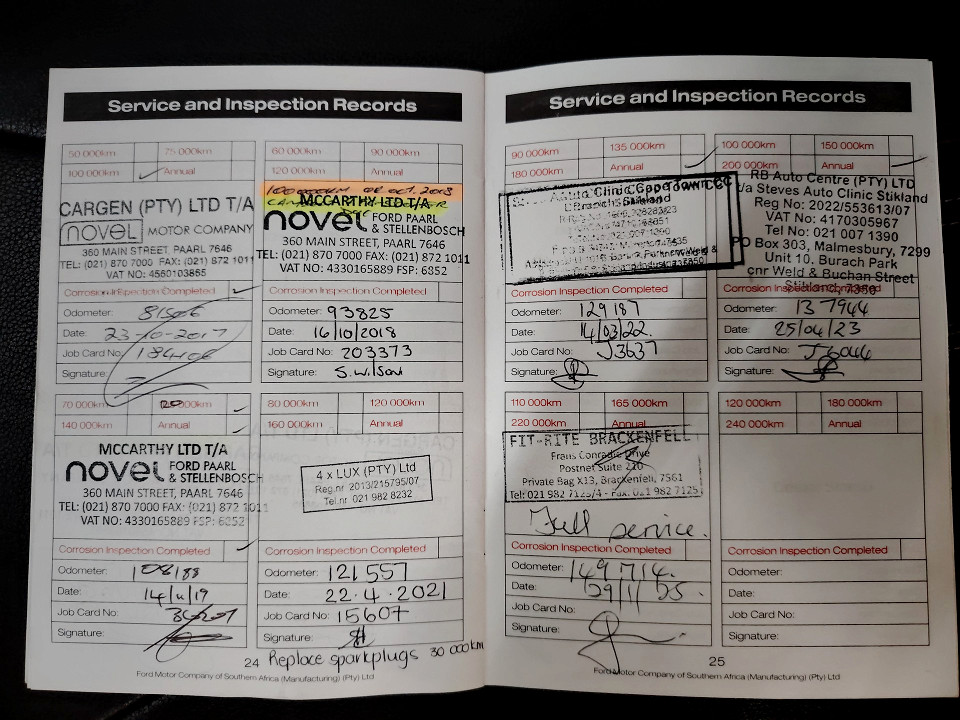 Service and Inspection Records
50 000km 75 000km
100 000km Annual
CARGEN (PTY) LTD T/A
novel MOTOR COMPANY
360 MAIN STREET, PAARL 7646
TEL: (021) 870 7000 FAX: (021) 872 1011
VAT NO: 4560103855
Corrosion Inspection Completed
Odometer: 81506
Date: 23-10-2017
Job Card No:
Signature:
60 000km 90 000km
120 000km Annual
100 000km OR OCT. 2018
MCCARTHY LTD T/A
novel FORD PAARL
& STELLENBOSCH
360 MAIN STREET, PAARL 7646
TEL: (021) 870 7000 FAX: (021) 872 1011
VAT NO: 4330165889 FSP: 6852
Corrosion Inspection Completed
Odometer: 93825
Date: 16/10/2018
Job Card No: 203373
Signature: S. Wilson
70 000km 000km
140 000km Annual
MCCARTHY LTD T/A
novel FORD PAARL
& STELLENBOSCH
360 MAIN STREET, PAARL 7646
TEL: (021) 870 7000 FAX: (021) 872 1011
VAT NO: 4330165889 FSP: 6852
Corrosion Inspection Completed
Odometer: 108188
Date:
Job Card No:
Signature:
80 000km 120 000km
160 000km Annual
4 x LUX (PTY) Ltd
Reg.nr 2013/215795/07
Tel.nr 021 982 8232
Corrosion Inspection Completed
Odometer: 121 557
Date: 22.4.2021
Job Card No: 15607
Signature:
Replace sparkplugs 30 000km
24
Ford Motor Company of Southern Africa (Manufacturing) (Pty) Ltd
Service and Inspection Records
90 000km 135 000km
180 000km Annual
Corrosion Inspection Completed
Odometer: 129 187
Date: 14/03/22.
Job Card No: J3637
Signature:
100 000km 150 000km
200 000km Annual
RB Auto Centre (PTY) LTD
t/a Steves Auto Clinic Stikland
Reg No: 2022/553613/07
VAT No: 4170305967
Tel No: 021 007 1390
PO Box 303, Malmesbury, 7299
Unit 10. Burach Park
cnr Weld & Buchan Street
Stikland, 7350
Corrosion Inspection Completed
Odometer: 137944
Date: 25/04/23
Job Card No: J6044
Signature:
110 000km 165 000km
220 000km Annual
FIT-RITE BRACKENFELL
Frans Conradie Drive
Postnet Suite 210
Private Bag X13, Brackenfell, 7561
Tel: 021 982 7123/4 - Fax: 021 982 7125
Full service.
Corrosion Inspection Completed
Odometer: 149 714.
Date:
Job Card No:
Signature:
120 000km 180 000km
240 000km Annual
Corrosion Inspection Completed
Odometer:
Date:
Job Card No:
Signature:
25
Ford Motor Company of Southern Africa (Manufacturing) (Pty) Ltd